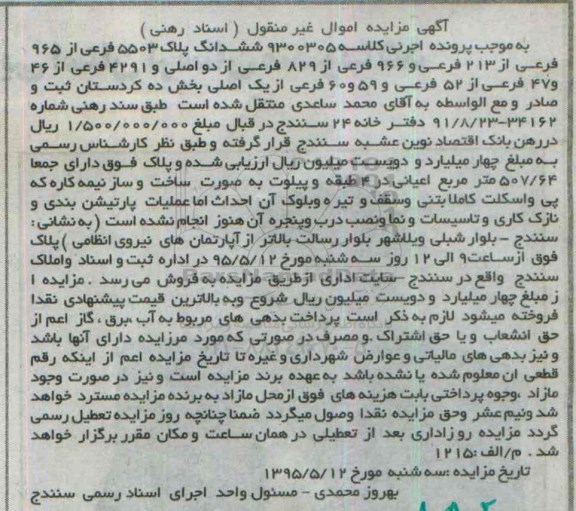 آگهی مزایده اموال غیر منقول ( اسناد رهنی )
به موجب پرونده اجرئی کلاسه ۹۳۰۰۳۰۵ ششدانگ پلاک ۵۵۰۳ فرعی از ۹۶۵
فرعی از ۲۱۳ فرعی و ۹۶۶ فرعی از ۸۲۹ فرعی از دو اصلی و ۴۲۹۱ فرعی از ۴۶
و۴۷ فرعی از ۵۲ فرعی و ۵۹ و۶۰ فرعی از یک اصلی بخش ده کردستان ثبت و
صادر و مع الواسطه به آقای محمد ساعدی منتقل شده است طبق سند رهنی شماره
۳۴۱۶۲-۹۱/۸/۲۳ دفتر خانه ۲۴ سنندج در قبال مبلغ ۱/۵۰۰/۰۰۰/۰۰۰ ریال
دررهن بانک اقتصاد نوین عشبه سنندج قرار گرفته و طبق نظر کارشناس رسمی
به مبلغ چهار میلیارد و دویست میلیون ریال ارزیابی شده و پلاک فوق دارای جمعا
۵۰۷/۶۴ متر مربع اعیانی در ۴ طبقه و پیلوت به صورت ساخت و ساز نیمه کاره که
پی واسکلت کاملا بتنی وسقف و تیر ه وبلوک آن احداث اما عملیات پارتیشن بندی و
نازک کاری و تاسیسات و نما ونصب درب وپنجره آن هنوز انجام نشده است ( به نشانی :
سنندج - بلوار شبلی ویلاشهر بلوار رسالت بالاتر از آپارتمان های نیروی انظامی ) پلاک
فوق ازساعت۹ الی ۱۲ روز سه شنبه مورخ ۹۵/۵/۱۲ در اداره ثبت و اسناد واملاک
سنندج واقع در سنندج -سایت اداری ازطریق مزایده به فروش می رسد . مزایده ا
ز مبلغ چهار میلیارد و دویست میلیون ریال شروع وبه بالاترین قیمت پیشنهادی نقدا
فروخته میشود لازم به ذکر است پرداخت بدهی های مربوط به آب ،برق ، گاز اعم از
حق انشعاب و یا حق اشتراک .و مصرف در صورتی که مورد مرزایده دارای آنها باشد
و نیز بدهی های مالیاتی و عوارض شهرداری و غیره تا تاریخ مزایده اعم از اینکه رقم
قطعی ان معلوم شده یا نشده باشد به عهده برند مزایده است و نیز در صورت وجود
مازاد ،وجوه پرداختی بابت هزینه های فوق ازمحل مازاد به برنده مزایده مسترد خواهد
شد ونیم عشر وحق مزایده نقدا وصول میگردد ضمنا چنانچه روز مزایده تعطیل رسمی
گردد مزایده روز اداری بعد از تعطیلی در همان ساعت و مکان مقرر برگزار خواهد
شد . م/الف :۱۲۱۵
تاریخ مزایده :سه شنبه مورخ ۱۳۹۵/۵/۱۲
بهروز محمدی - مسئول واحد اجرای اسناد رسمی سنندج